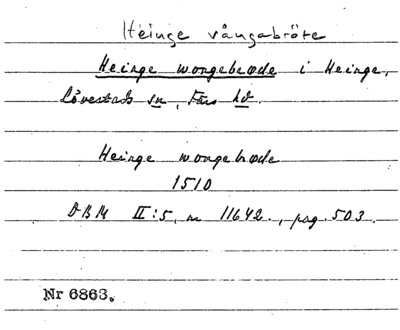 Heinge vångabröte
Heinge wongebrode i Heinge,
Lövestads sn, Färs hd.
Heinge wongebrode
1510
DBM II:5, nr 11642., pag. 503.
Nr 6863.